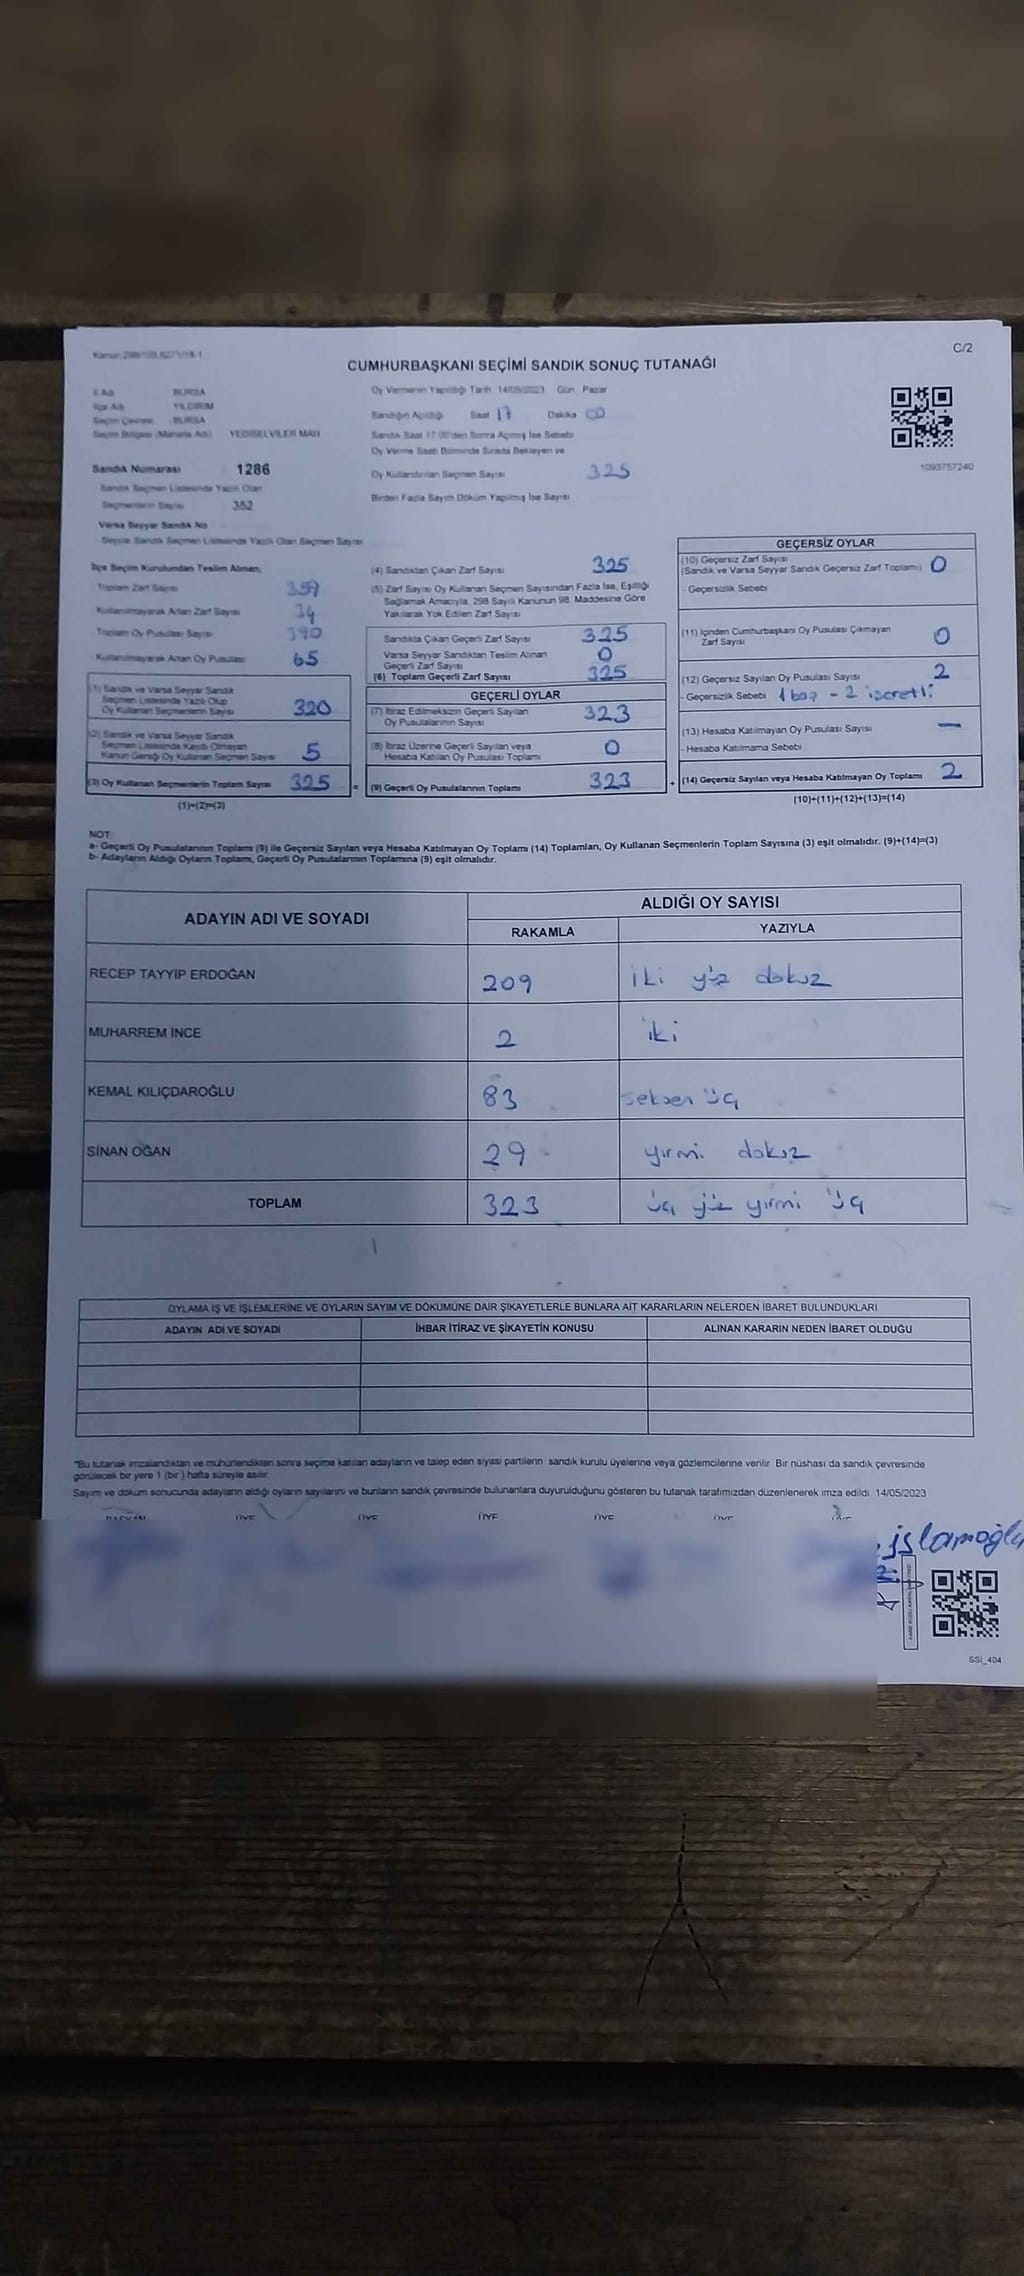 Kanun:298/105,6271/18-1
C/2
CUMHURBAŞKANI SEÇİMİ SANDIK SONUÇ TUTANAĞI
İl Adı BURSA
İlçe Adı YILDIRIM
Seçim Çevresi BURSA
Seçim Bölgesi (Mahalle Adı) YEDİSELVİLER MAH
Sandık Numarası 1286
Sandık Seçmen Listesinde Yazılı Olan
Seçmenlerin Sayısı 352
Varsa Seyyar Sandık No
Seyyar Sandık Seçmen Listesinde Yazılı Olan Seçmen Sayısı
Oy Vermenin Yapıldığı Tarih 14/05/2023 Gün Pazar
Sandığın Açıldığı Saat 17 Dakika 00
Sandık Saat 17:00'den Sonra Açılmış İse Sebebi
Oy Verme Saati Bitiminde Sırada Bekleyen ve
Oy Kullandırılan Seçmen Sayısı 325
Birden Fazla Sayım Döküm Yapılmış İse Sayısı
1093757240
İlçe Seçim Kurulundan Teslim Alınan;
Toplam Zarf Sayısı 359
Kullanılmayarak Artan Zarf Sayısı 34
Toplam Oy Pusulası Sayısı 390
Kullanılmayarak Artan Oy Pusulası 65
(1) Sandık ve Varsa Seyyar Sandık
Seçmen Listesinde Yazılı Olup
Oy Kullanan Seçmenlerin Sayısı 320
(2) Sandık ve Varsa Seyyar Sandık
Seçmen Listesinde Kayıtlı Olmayan
Kanun Gereği Oy Kullanan Seçmen Sayısı 5
(3) Oy Kullanan Seçmenlerin Toplam Sayısı 325
(1)+(2)=(3)
(4) Sandıktan Çıkan Zarf Sayısı 325
(5) Zarf Sayısı Oy Kullanan Seçmen Sayısından Fazla İse, Eşitliği
Sağlamak Amacıyla, 298 Sayılı Kanunun 98. Maddesine Göre
Yakılarak Yok Edilen Zarf Sayısı
Sandıkta Çıkan Geçerli Zarf Sayısı 325
Varsa Seyyar Sandıktan Teslim Alınan
Geçerli Zarf Sayısı 0
(6) Toplam Geçerli Zarf Sayısı 325
GEÇERLİ OYLAR
(7) İtiraz Edilmeksizin Geçerli Sayılan
Oy Pusulalarının Sayısı 323
(8) İtiraz Üzerine Geçerli Sayılan veya
Hesaba Katılan Oy Pusulası Toplamı 0
= (9) Geçerli Oy Pusulalarının Toplamı 323
GEÇERSİZ OYLAR
(10) Geçersiz Zarf Sayısı
(Sandık ve Varsa Seyyar Sandık Geçersiz Zarf Toplamı) 0
- Geçersizlik Sebebi
(11) İçinden Cumhurbaşkanı Oy Pusulası Çıkmayan
Zarf Sayısı 0
(12) Geçersiz Sayılan Oy Pusulası Sayısı 2
- Geçersizlik Sebebi 1 boş - 2 işaretli
(13) Hesaba Katılmayan Oy Pusulası Sayısı —
- Hesaba Katılmama Sebebi
+ (14) Geçersiz Sayılan veya Hesaba Katılmayan Oy Toplamı 2
(10)+(11)+(12)+(13)=(14)
NOT:
a- Geçerli Oy Pusulalarının Toplamı (9) ile Geçersiz Sayılan veya Hesaba Katılmayan Oy Toplamı (14) Toplamları, Oy Kullanan Seçmenlerin Toplam Sayısına (3) eşit olmalıdır. (9)+(14)=(3)
b- Adayların Aldığı Oyların Toplamı, Geçerli Oy Pusulalarının Toplamına (9) eşit olmalıdır.
ADAYIN ADI VE SOYADI
ALDIĞI OY SAYISI
RAKAMLA YAZIYLA
RECEP TAYYİP ERDOĞAN 209 iki yüz dokuz
MUHARREM İNCE 2 iki
KEMAL KILIÇDAROĞLU 83 seksen üç
SİNAN OĞAN 29 yirmi dokuz
TOPLAM 323 üç yüz yirmi üç
OYLAMA İŞ VE İŞLEMLERİNE VE OYLARIN SAYIM VE DÖKÜMÜNE DAİR ŞİKAYETLERLE BUNLARA AİT KARARLARIN NELERDEN İBARET BULUNDUKLARI
ADAYIN ADI VE SOYADI İHBAR İTİRAZ VE ŞİKAYETİN KONUSU ALINAN KARARIN NEDEN İBARET OLDUĞU
*Bu tutanak imzalandıktan ve mühürlendikten sonra seçime katılan adayların ve talep eden siyasi partilerin sandık kurulu üyelerine veya gözlemcilerine verilir. Bir nüshası da sandık çevresinde
görülecek bir yere 1 (bir) hafta süreyle asılır.
Sayım ve döküm sonucunda adayların aldığı oyların sayılarını ve bunların sandık çevresinde bulunanlara duyurulduğunu gösteren bu tutanak tarafımızdan düzenlenerek imza edildi. 14/05/2023
BAŞKAN ÜYE ÜYE ÜYE ÜYE ÜYE
islamoğlu
SSI_404